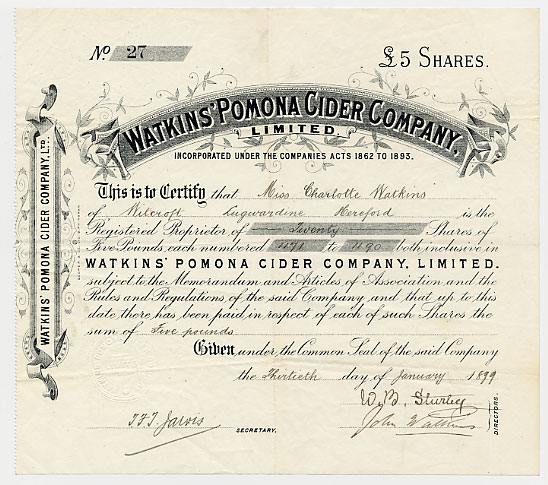 No. 27
£5 SHARES.
WATKINS' POMONA CIDER COMPANY,
LIMITED.
INCORPORATED UNDER THE COMPANIES ACTS 1862 TO 1893.
WATKINS' POMONA CIDER COMPANY, LTD.
This is to Certify that Miss Charlotte Watkins
of Wilcroft Lugwardine Hereford is the
Registered Proprietor of Twenty Shares of
Five Pounds each numbered 471 to 490 both inclusive in
WATKINS' POMONA CIDER COMPANY, LIMITED.
subject to the Memorandum and Articles of Association and the
Rules and Regulations of the said Company and that up to this
date there has been paid in respect of each of such Shares the
sum of Five pounds
Given under the Common Seal of the said Company
the Thirtieth day of January 1899
W. B. Sturley
John Watkins
DIRECTORS.
Jarvis
SECRETARY.